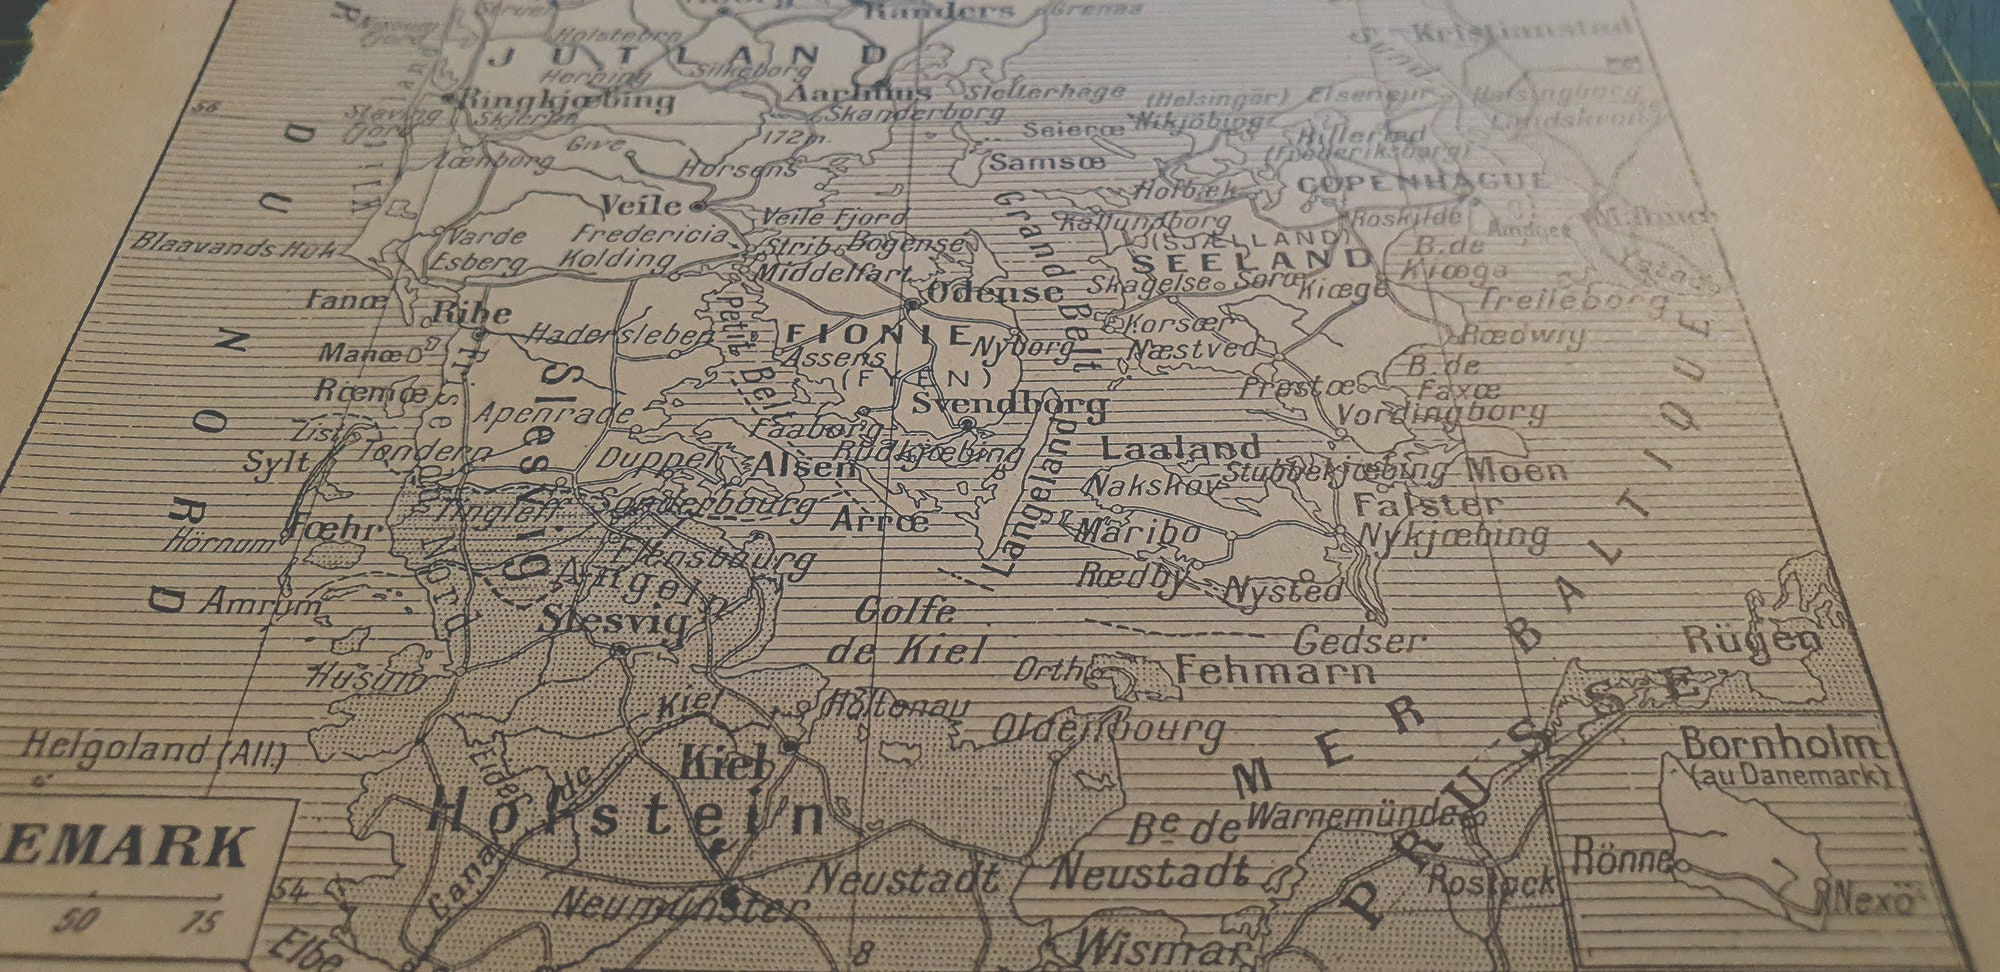 Randers
Grenaa
Holstebro
JUTLAND
Herning
Silkeborg
Kristianstad
Sund
56
Ringkjœbing
Aarhuus
Sletterhage
Skjern
Skanderborg
(Helsingör) Elseneur
Helsingborg
Landskrona
Stavning
Fjord
172m.
Seierœ
Nikjöbing
Hillerœd
(Frederiksborg)
Give
Lœnborg
Horsens
Samsœ
Holbæk
COPENHAGUE
Veile
Veile Fjord
Grand Belt
Kallundborg
Roskilde
Amager
Blaavands Huk
Varde
Fredericia
Strib
Bogense
(SJÆLLAND)
SEELAND
B. de
Kiœge
Ystad
Esberg
Kolding
Middelfart
Skagelse
Sorœ
Kiœge
Trelleborg
Fanœ
Ribe
Odense
Petit Belt
Hadersleben
FIONIE
Nyborg
Korsœr
Rœdwig
Manœ
Assens
(FYEN)
Næstved
B. de
Faxœ
Rœmœ
Slesvig
Apenrade
Svendborg
Prestœ
Vordingborg
List
Faaborg
Rudkjœbing
Laaland
Sylt
Tondern
Duppel
Alsen
Langeland
Stubbekjœbing
Moen
Nakskov
Falster
Sonderbourg
Arrœ
Tingleff
Fœhr
Hörnum
Maribo
Nykjœbing
Flensbourg
Angeln
Rœdby
Nysted
Amrum
Slesvig
Golfe
de Kiel
Gedser
Rügen
Husum
Orth
Fehmarn
Kiel
Holtenau
Oldenbourg
Helgoland (All.)
Eider
Kiel
Bornholm
(au Danemark)
Holstein
Canal de
MER BALTIQUE
DU NORD
PRUSSE
Be de
Neustadt
Warnemünde
EMARK
50 75
54
Neumünster
Neustadt
Rostock
Rönne
Nexö
Elbe
8
Wismar